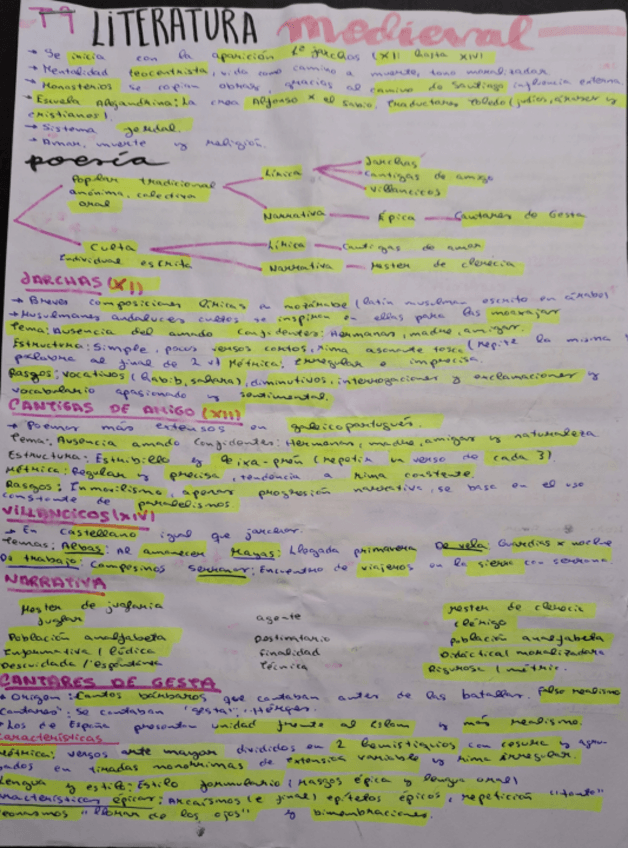 T1 LITERATURA medieval
→ Se inicia con la aparición de jarchas (XII hasta XIV)
→ Mentalidad teocentrista, vida como camino a muerte, tono moralizador.
→ Monasterios se copian obras, gracias al camino de Santiago influencia externa.
→ Escuela : La crea Alfonso X el sabio, traductores Toledo (judíos, árabes y
cristianos).
→ Sistema feudal.
→ Amor, muerte y religión.
poesía
Popular tradicional
anónima, colectiva
oral
Lírica
Jarchas
Cantigas de amigo
Villancicos
Narrativa — Épica — Cantares de Gesta
Culta
Individual escrita
Lírica — Cantigas de amor
Narrativa — Mester de clerecía
JARCHAS (XI)
→ Breves composiciones líricas en mozárabe (latín musulman escrito en árabe)
→ Musulmanes andaluces cultos se inspiran en ellas para las moaxajas
Tema: Ausencia del amado Confidentes: Hermanas, madre, amigas.
Estructura: Simple, pocos versos cortos, rima asonante tosca (repite la misma
palabra al final de 2 v) Métrica: irregular e imprecisa.
Rasgos: Vocativos (habib, sahara), diminutivos, interrogaciones y exclamaciones y
vocabulario apasionado y sentimental.
CANTIGAS DE AMIGO (XII)
→ Poemas más extensos en galaicoportugués.
Tema: Ausencia amado Confidentes: Hermanas, madre, amigas y naturaleza
Estructura: Estribillo y leixa-prén (repetir un verso de cada 3).
Métrica: Regular y precisa, tendencia a rima constante.
Rasgos: Inmovilismo, apenas progresión narrativa, se basa en el uso
constante de paralelismos
VILLANCICOS (XIV)
→ En castellano igual que jarchas.
Temas: Albas: Al amanecer Mayas: Llegada primavera De vela: Guardias x noche
De trabajo: Campesinos Serranas: Encuentro de viajeros en la sierra con serrana.
NARRATIVA
Mester de juglaria mester de clerecia
juglar agente clérigo
Población analfabeta Destinatario población analfabeta
Informativa / lúdica finalidad Didáctica / moralizadora
Descuidada / espontánea técnica Rigurosa / métric.
CANTARES DE GESTA
→ Origen: Cantos bárbaros que cantaban antes de las batallas. falso realismo
Cantares: Se cantaban "gesta":
→ Los de España presentan unidad frente al Islam y más realismo.
Características
Métrica: versos arte mayor divididos en 2 hemistiquios con cesura y agru-
pados en tiradas monorrimas de extensión variable y rima irregular.
Lengua y estilo: Estilo formulario (rasgos épica y lengua oral)
Características épicas: Arcaísmos (e final) epítetos épicos, repetición "tanto"
"llorar de los ojos" y bimembraciones.